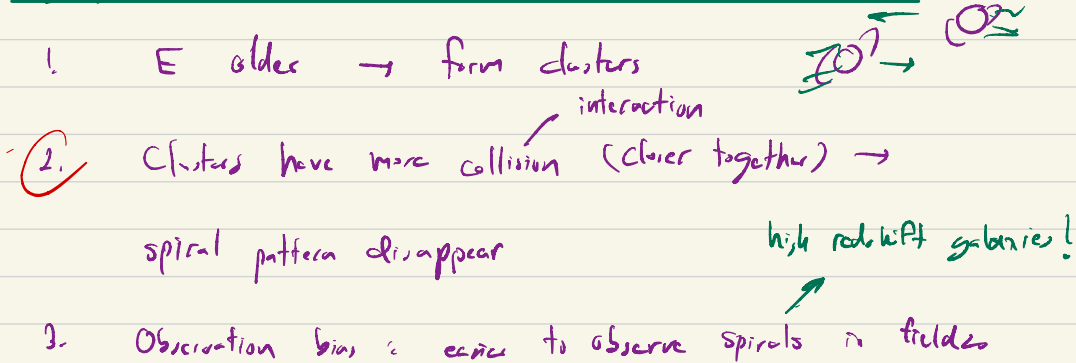 1. E older → form clusters
interaction
2. Clusters have more collision (closer together) →
spiral pattern disappear
high redshift galaxies!
3. Observation bias : easier to observe spirals in fields